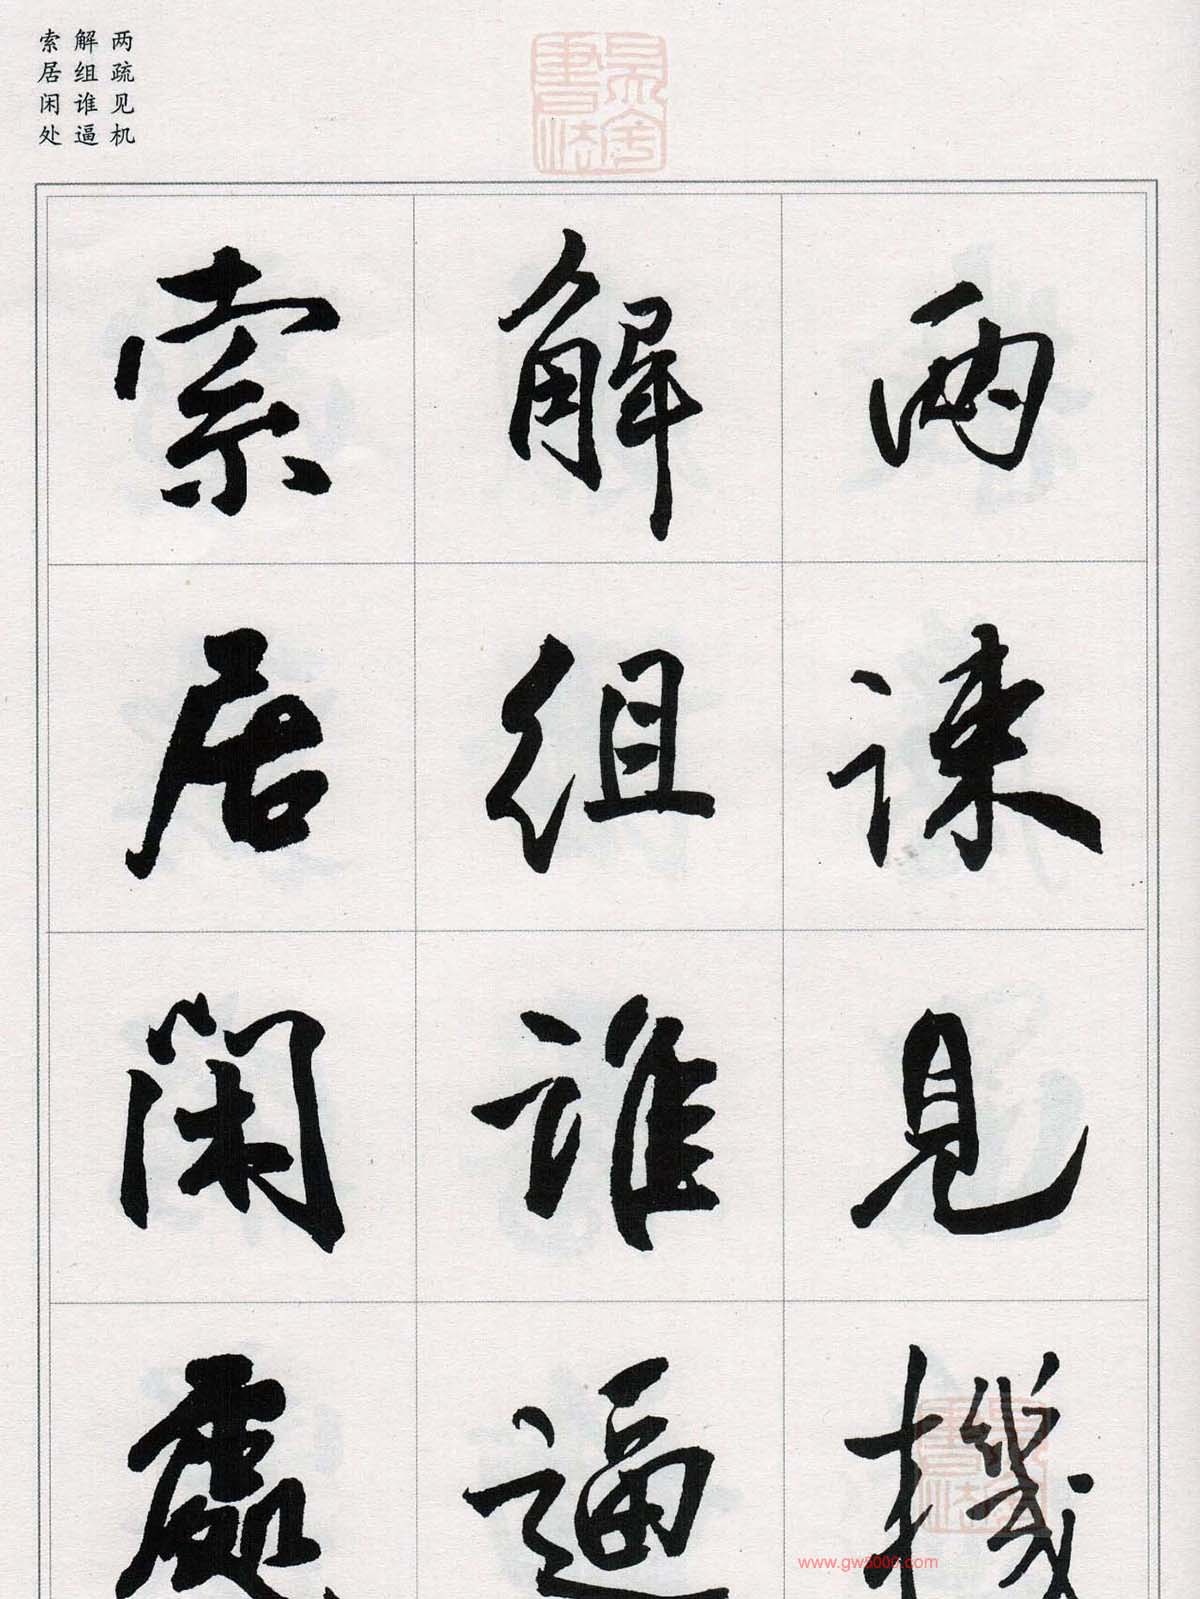 两疏见机
解组谁逼
索居闲处
兩疎見機
解組誰逼
索居閑處
www.gw5000.com